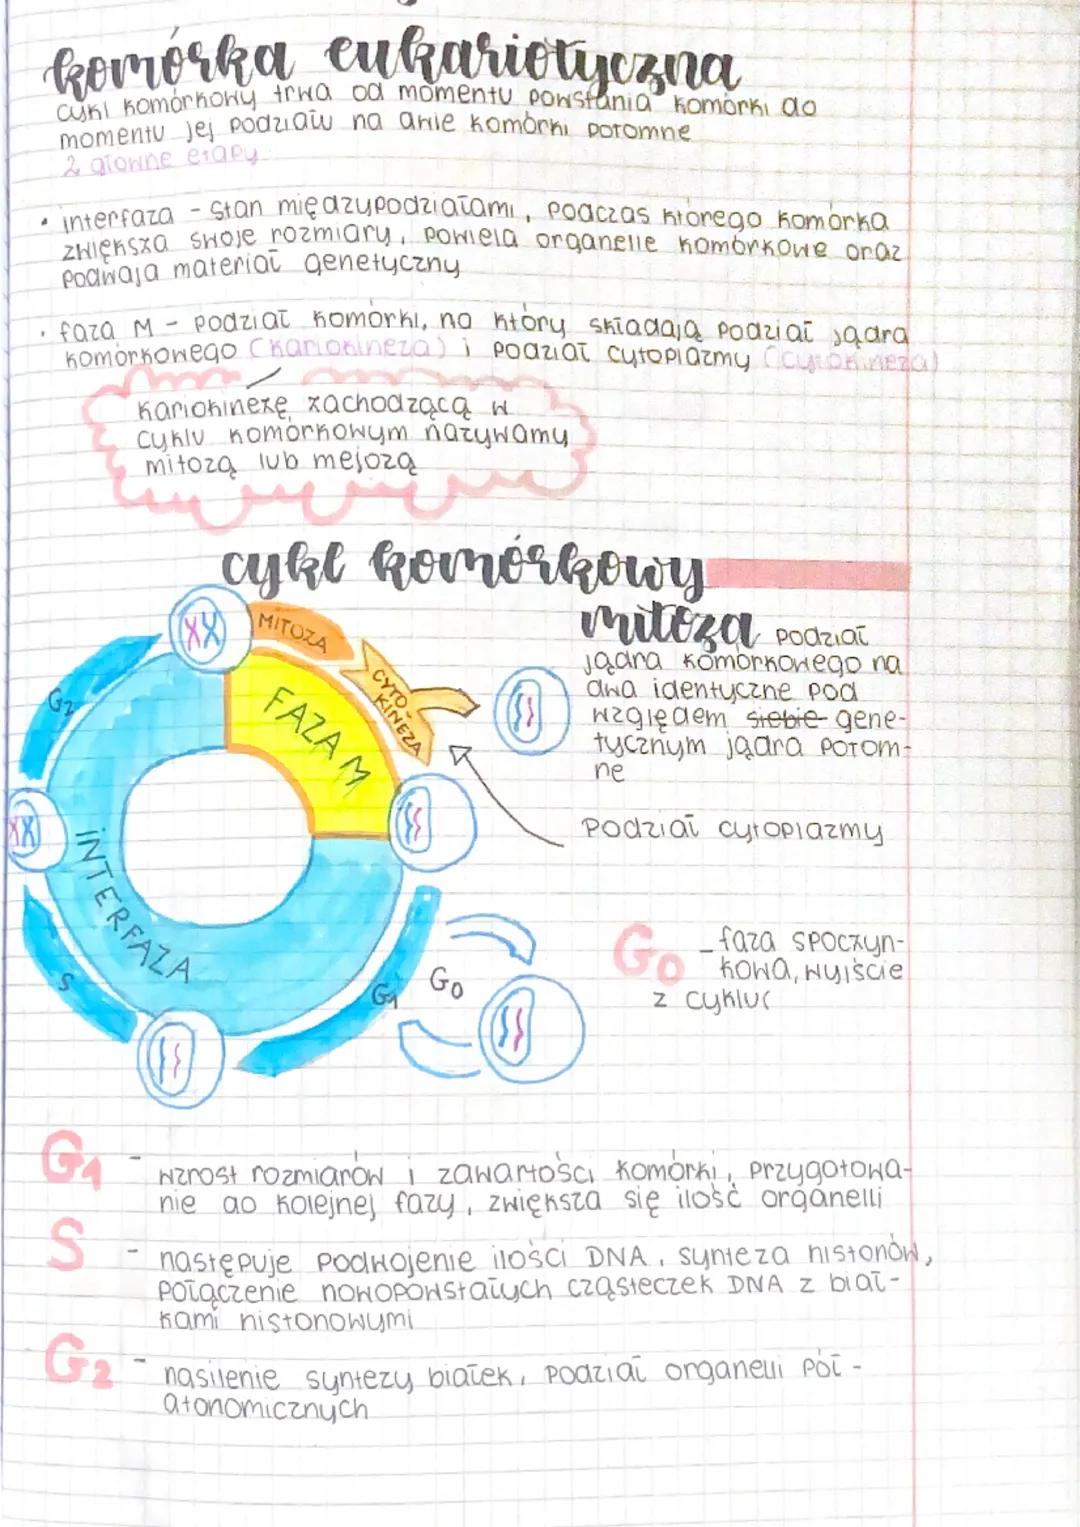 komórka eukariotyczna
cykl komórkowy trwa od momentu powstania komórki do
momentu jej podziału na dwie komórki potomne
2 główne etapy
• interfaza - stan międzypodziałami, podczas którego komórka
zwiększa swoje rozmiary, powiela organelle komórkowe oraz
podwaja materiał genetyczny
• faza M - podział komórki, na który składają podział jądra
komórkowego (kariokineza) i podział cytoplazmy (cytokineza)
kariokinezę zachodzącą w
cyklu komórkowym nazywamy
mitozą lub mejozą
cykl komórkowy
mitoza podział
jądra komórkowego na
dwa identyczne pod
względem siebie gene-
tycznym jądra potom-
ne
podział cytoplazmy
MITOZA
CYTO-
KINEZA
FAZA M
G2
INTERFAZA
S
G1
G0
G0 - faza spoczyn-
kowa, wyjście
z cyklu
G1 - wzrost rozmiarów i zawartości komórki, przygotowa-
nie do kolejnej fazy, zwiększa się ilość organelli
S - następuje podwojenie ilości DNA, synteza histonów,
połączenie nowopowstałych cząsteczek DNA z biał-
kami histonowymi
G2 - nasilenie syntezy białek, podział organelli pół-
atonomicznych